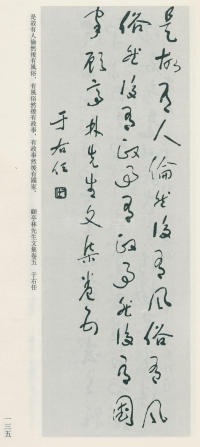 是故有人倫然後有風俗有風
俗然後有政事有政事然後有國
家顧亭林先生文集卷五
于右任
是故有人倫然後有風俗，有風俗然後有政事，有政事然後有國家。　顧亭林先生文集卷五　于右任
一三五